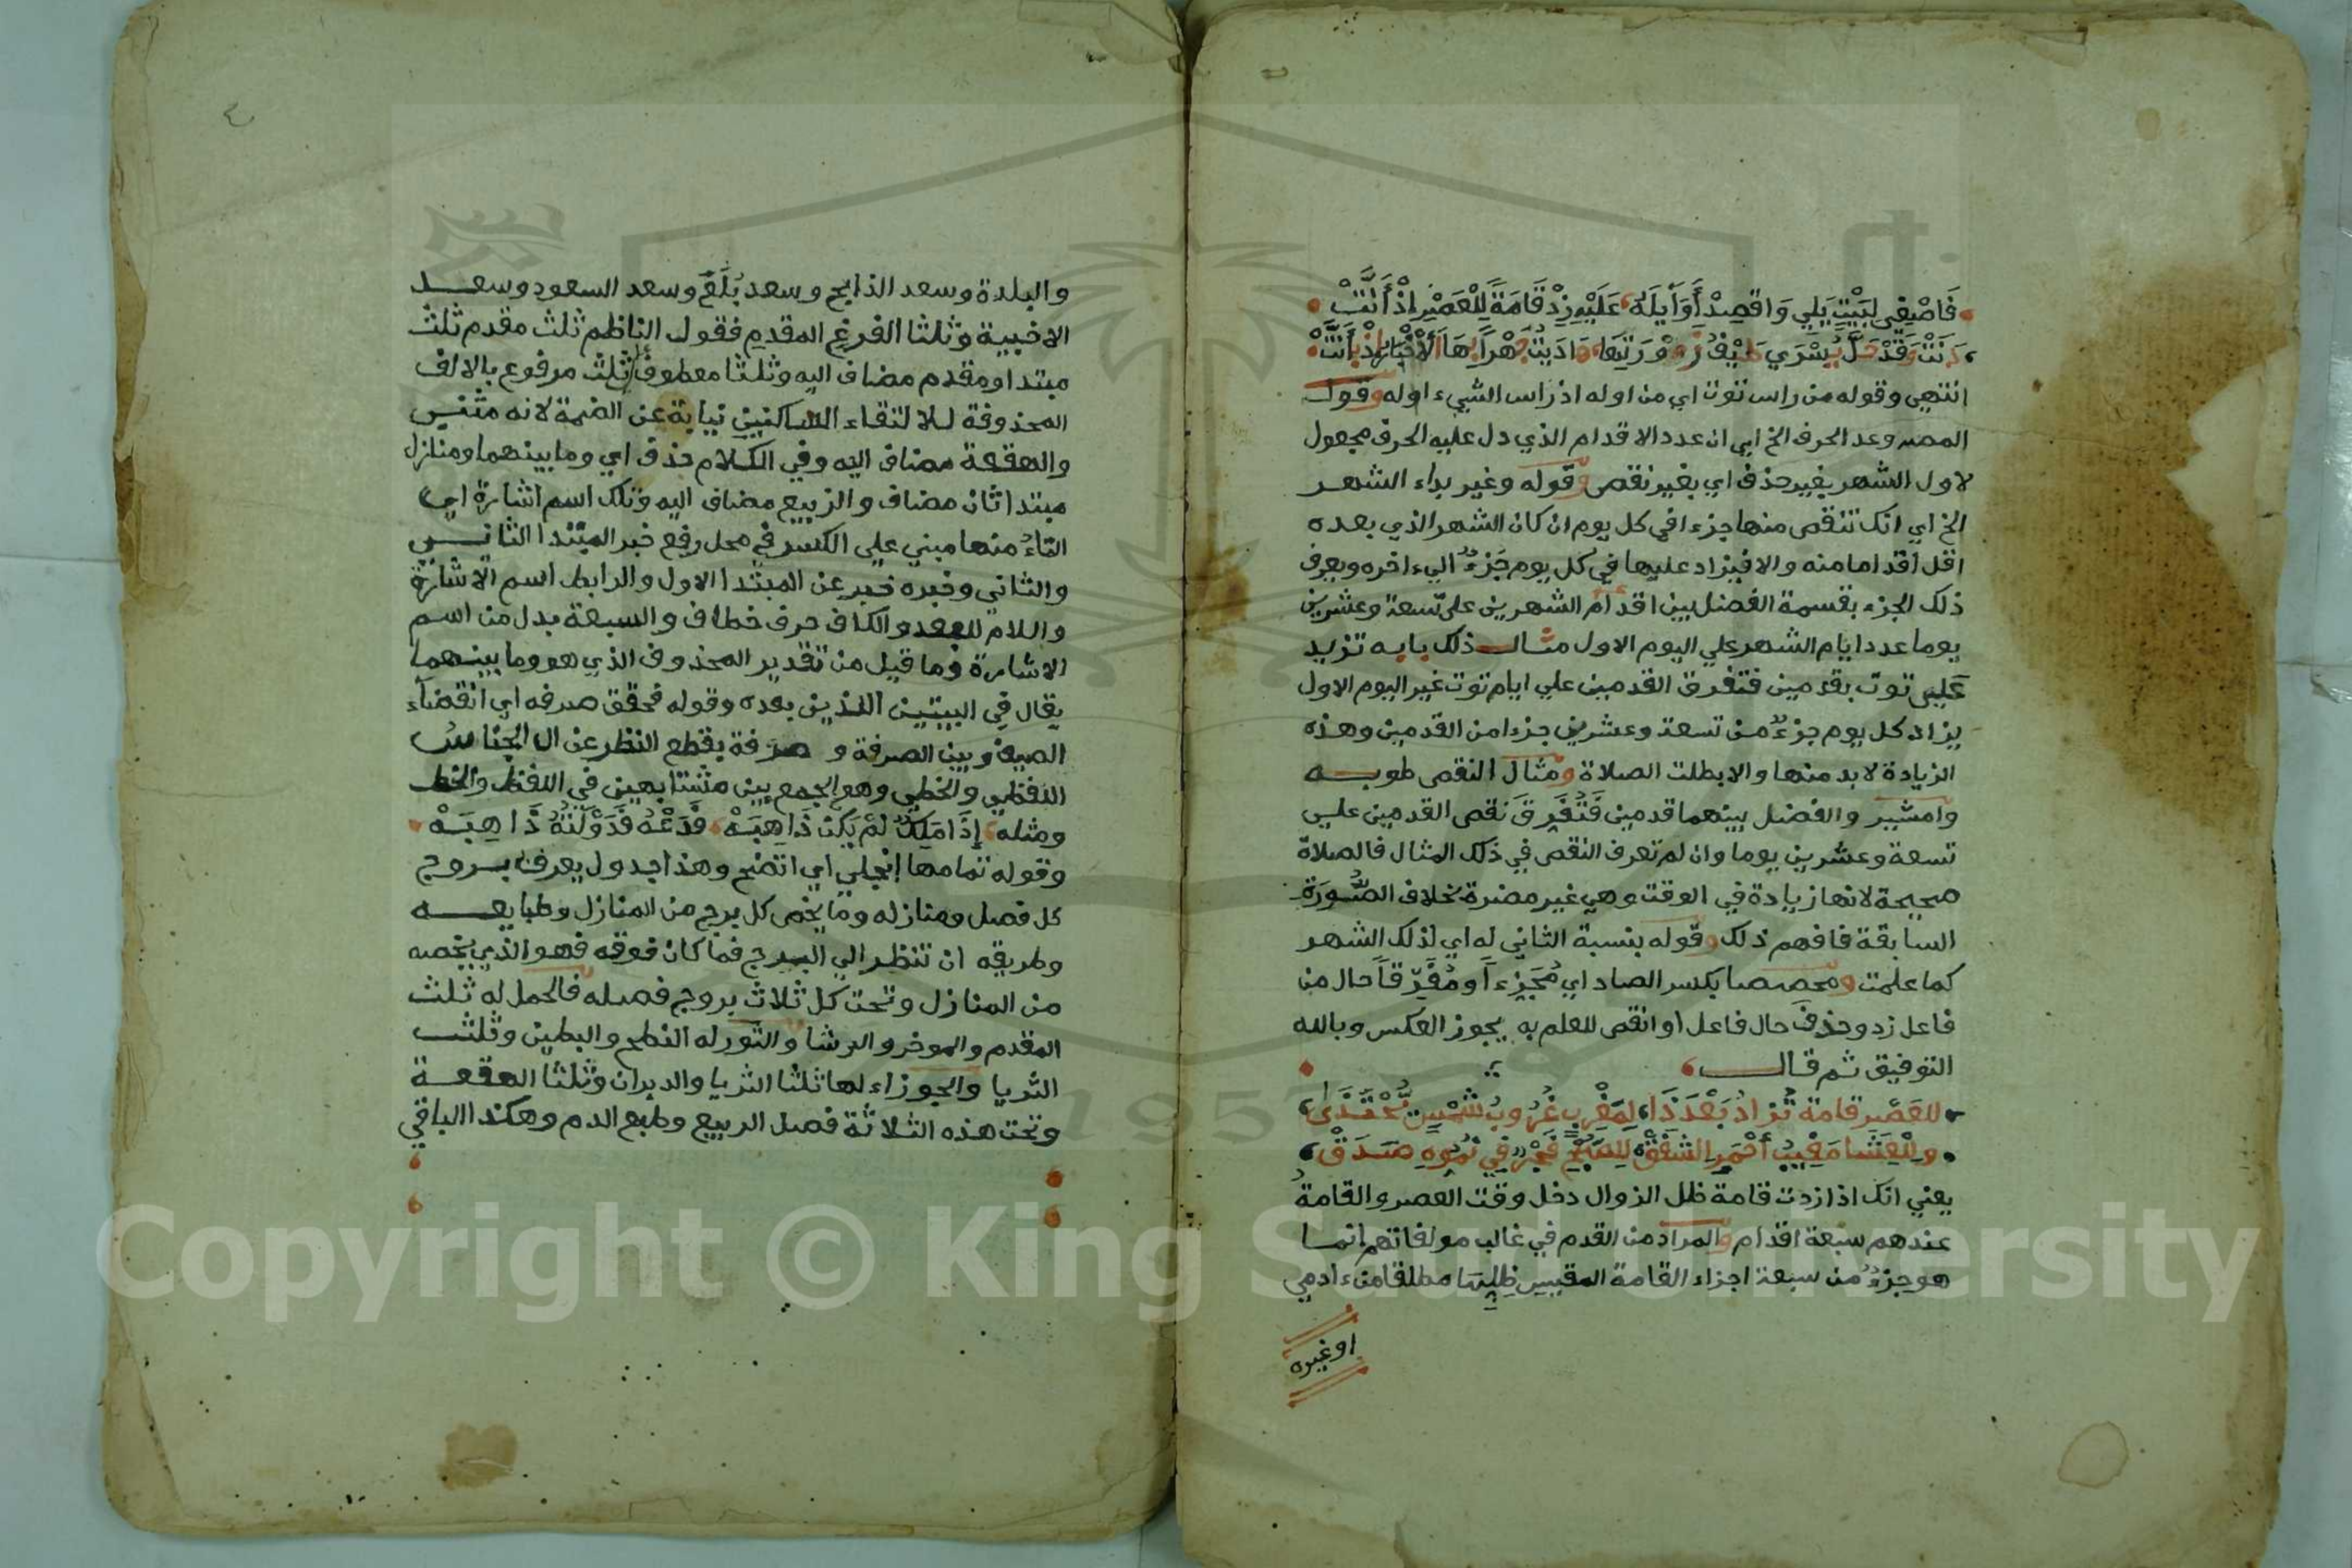 فَاصْيفي لِبَيْتٍ يَلي وَاقصِدْ أَوَائِلَهُ عَلَيْهِ زِدْ قَامَةً لِلْعَصْرِ إذْ أَتَتْ
دَنَتْ وَقَدْ حَلَّ يُسْرَي
انتهي وقوله من راس توت اي من اوله اذ راس الشيء اوله وقول
المصـ وعد الحرف الخ اي ان عدد الاقدام الذي دل عليه الحرف مجعول
لاول الشهر بغير حذف اي بغير نقص وقوله وغير بداء الشهر
الخ اي انك تنقص منها جزءا في كل يوم ان كان الشهر الذي بعده
اقل اقداما منه والا فيزاد عليها في كل يوم جَزءٌ الي اخره ويعرف
ذلك الجزء بقسمة الفضل بين اقدام الشهرين على تسعة وعشرين
يوما عدد ايام الشهر علي اليوم الاول مثال ذلك بابه تزيد
علي توت بقدمين فتفرق القدمين علي ايام توت غير اليوم الاول
يزاد كل يوم جزءٌ من تسعة وعشرين جزءا من القدمين وهذه
الزيادة لابد منها والا بطلت الصلاة ومثال النقص طوبه
وامشير والفضل بينهما قدمين فَتُفَرِقَ نقص القدمين علي
تسعة وعشرين يوما وان لم تعرف النقص في ذلك المثال فالصلاة
صحيحة لانها زيادة في الوقت وهي غير مضرة بخلاف الصُّورَةِ
السابقة فافهم ذلك وقوله بنسبة الثاني له اي لذلك الشهر
كما علمت ومحصصا بكسر الصاد اي مُجَزِءاً ومُفَرِّقاً حال من
فاعل زد وحذف حال فاعل او انقص للعلم به يجوز العكس وبالله
التوفيق ثم قال
للعَصْرِ قامة تُزادُ بَعْدَ ذَا لِمَغْرِبٍ غُرُوبُ شَمْسٍ يُحْتَذَى
ولِلْعِشَا مَغِيبُ أَحْمَرِ الشَفَقْ لِلصُبْحِ فَجْرٌ فِي نُمُوِّهِ صَدَقْ
يعني انك اذا زدت قامة ظل الزوال دخل وقت العصر والقامةُ
عندهم سبعة اقدام والمراد من القدم في غالب مولفاتهم انما
هو جزءٌ من سبعة اجزاء القامة المقيس ظلها مطلقا من ءادمي
او غيره
٤
والبلدة وسعد الذابح وسعد بُلَعَ وسعد السعود وسعد
الاخبية وثلثا الفرغ المقدم فقول الناظم ثلث مقدم ثلث
مبتدا ومقدم مضاف اليه وثلثا معطوف على ثلث مرفوع بالالف
المحذوفة للالتقاء الساكنين نيابة عن الضمة لانه مثني
والهقعة مضاف اليه وفي الكلام حذف اي وما بينهما ومنازل
مبتدا ثان مضاف والربيع مضاف اليه وتلك اسم اشارة اي
التاءُ منها مبني علي الكسر في محل رفع خبر المبتدا الثاني
والثاني وخبره خبر عن المبتدا الاول والرابط اسم الاشارة
واللام للبعد والكاف حرف خطاف والسبعة بدل من اسم
الاشارة وما قيل من تقدير المحذوف الذي هو وما بينهما
يقال في البيتين اللذين بعده وقوله فحقق صرفه اي انقضاء
الصيف وبين الصرفة و صرفة بقطع النظر عن ال الجناسُ
اللفظي والخطي وهو الجمع بين متشابهين في اللفظ والخط
ومثله إِذَا مَلِكٌ لَمْ يَكُنْ ذَا هِبَهْ فَدَعْهُ فَدَوْلَتُهُ ذَاهِبَهْ
وقوله تمامها إنجلي اي اتضح وهذا جدول يعرف بروج
كل فصل ومنازله وما يخص كل برج من المنازل وطبايعه
وطريقه ان تنظر الي البرج فما كان فوقه فهو الذي يخصه
من المنازل وتحت كل ثلاث بروج فصله فالحمل له ثلث
المقدم والموخر والرشا والثور له النطح والبطين وثلث
الثريا والجوزاء لها ثلثا الثريا والدبران وثلثا الهقعة
وتحت هذه الثلاثة فصل الربيع وطبع الدم وهكذا الباقي
Copyright © King Saud University
1957